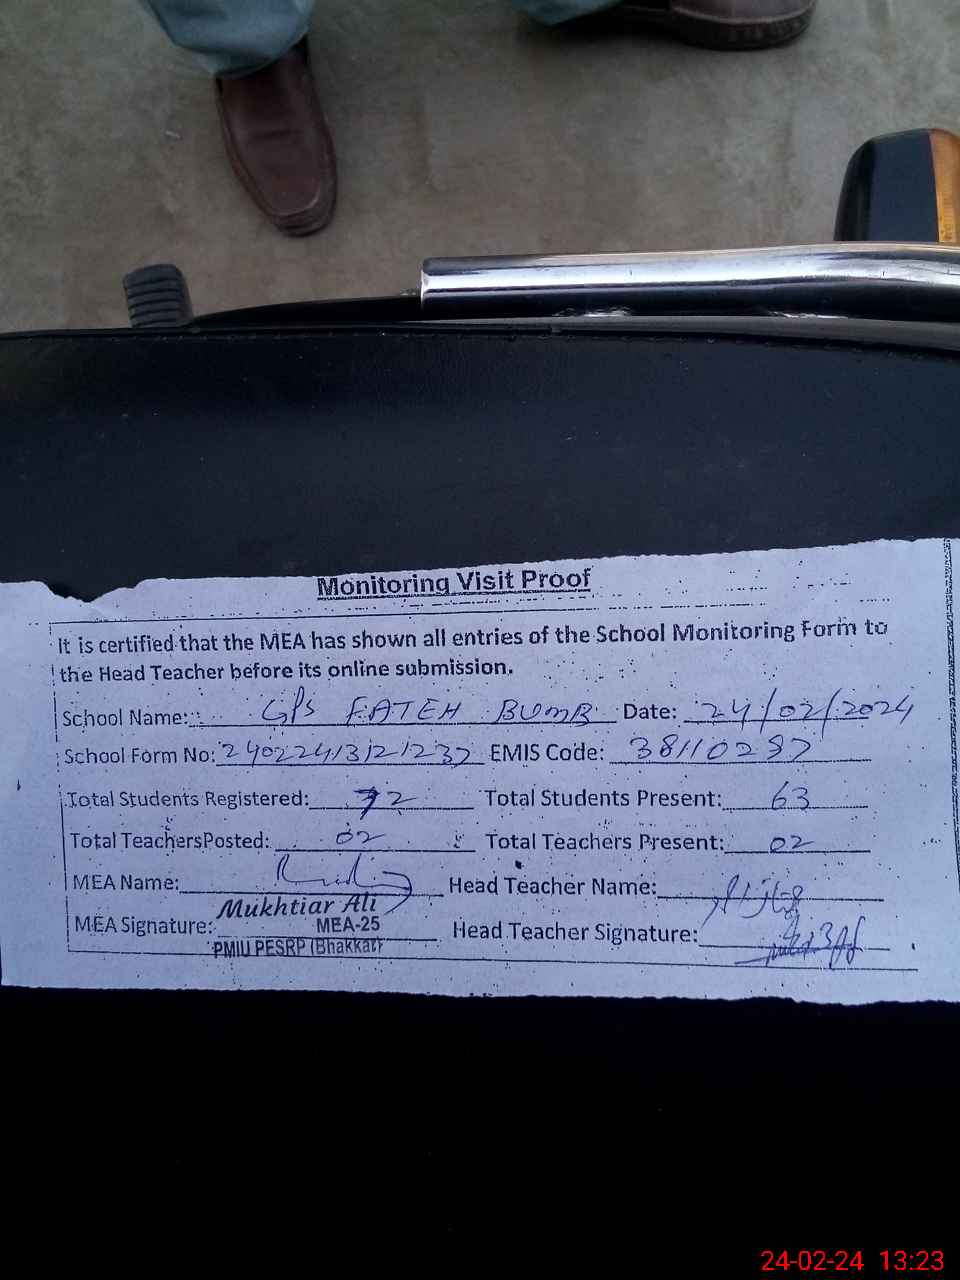 Monitoring Visit Proof
It is certified that the MEA has shown all entries of the School Monitoring Form to
the Head Teacher before its online submission.
School Name: GPS FATEH BUMB Date: 24/02/2024
School Form No: EMIS Code: 38110287
Total Students Registered: 72 Total Students Present: 63
Total TeachersPosted: 02 Total Teachers Present: 02
MEA Name: Head Teacher Name:
Mukhtiar Ali
MEA Signature: MEA-25 Head Teacher Signature:
PMIU PESRP (Bhakkar)
24-02-24 13:23